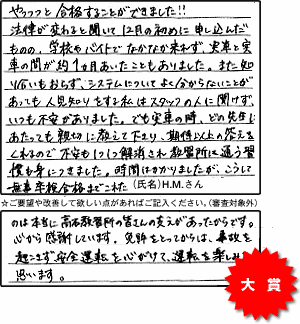 やっっっと合格することができました!!
法律が変わると聞いて12月の初めに申し込んだ
ものの、学校やバイトでなかなか来れず、実車と実
車の間が約1ヵ月あいたこともありました。また知
り合いもおらず、システムについてよく分からないことが
あっても人見知りをする私はスタッフの人に聞けず、
いつも不安がありました。でも実車の時、どの先生に
あたっても親切に教えて下さり、期待以上の答えを
くれるので不安も1つ1つ解消され教習所に通う習
慣も身につきました。時間はかかりましたが、こうして
無事卒検合格までこれた(氏名)H.M.さん
☆ご要望や改善して欲しい点があればご記入ください。(審査対象外)
のは本当に高石教習所の皆さんの支えがあったからです。
心から感謝しています。免許をとってからは、事故を
起こさず安全運転を心がけて、運転を楽しみ
思います。
大賞